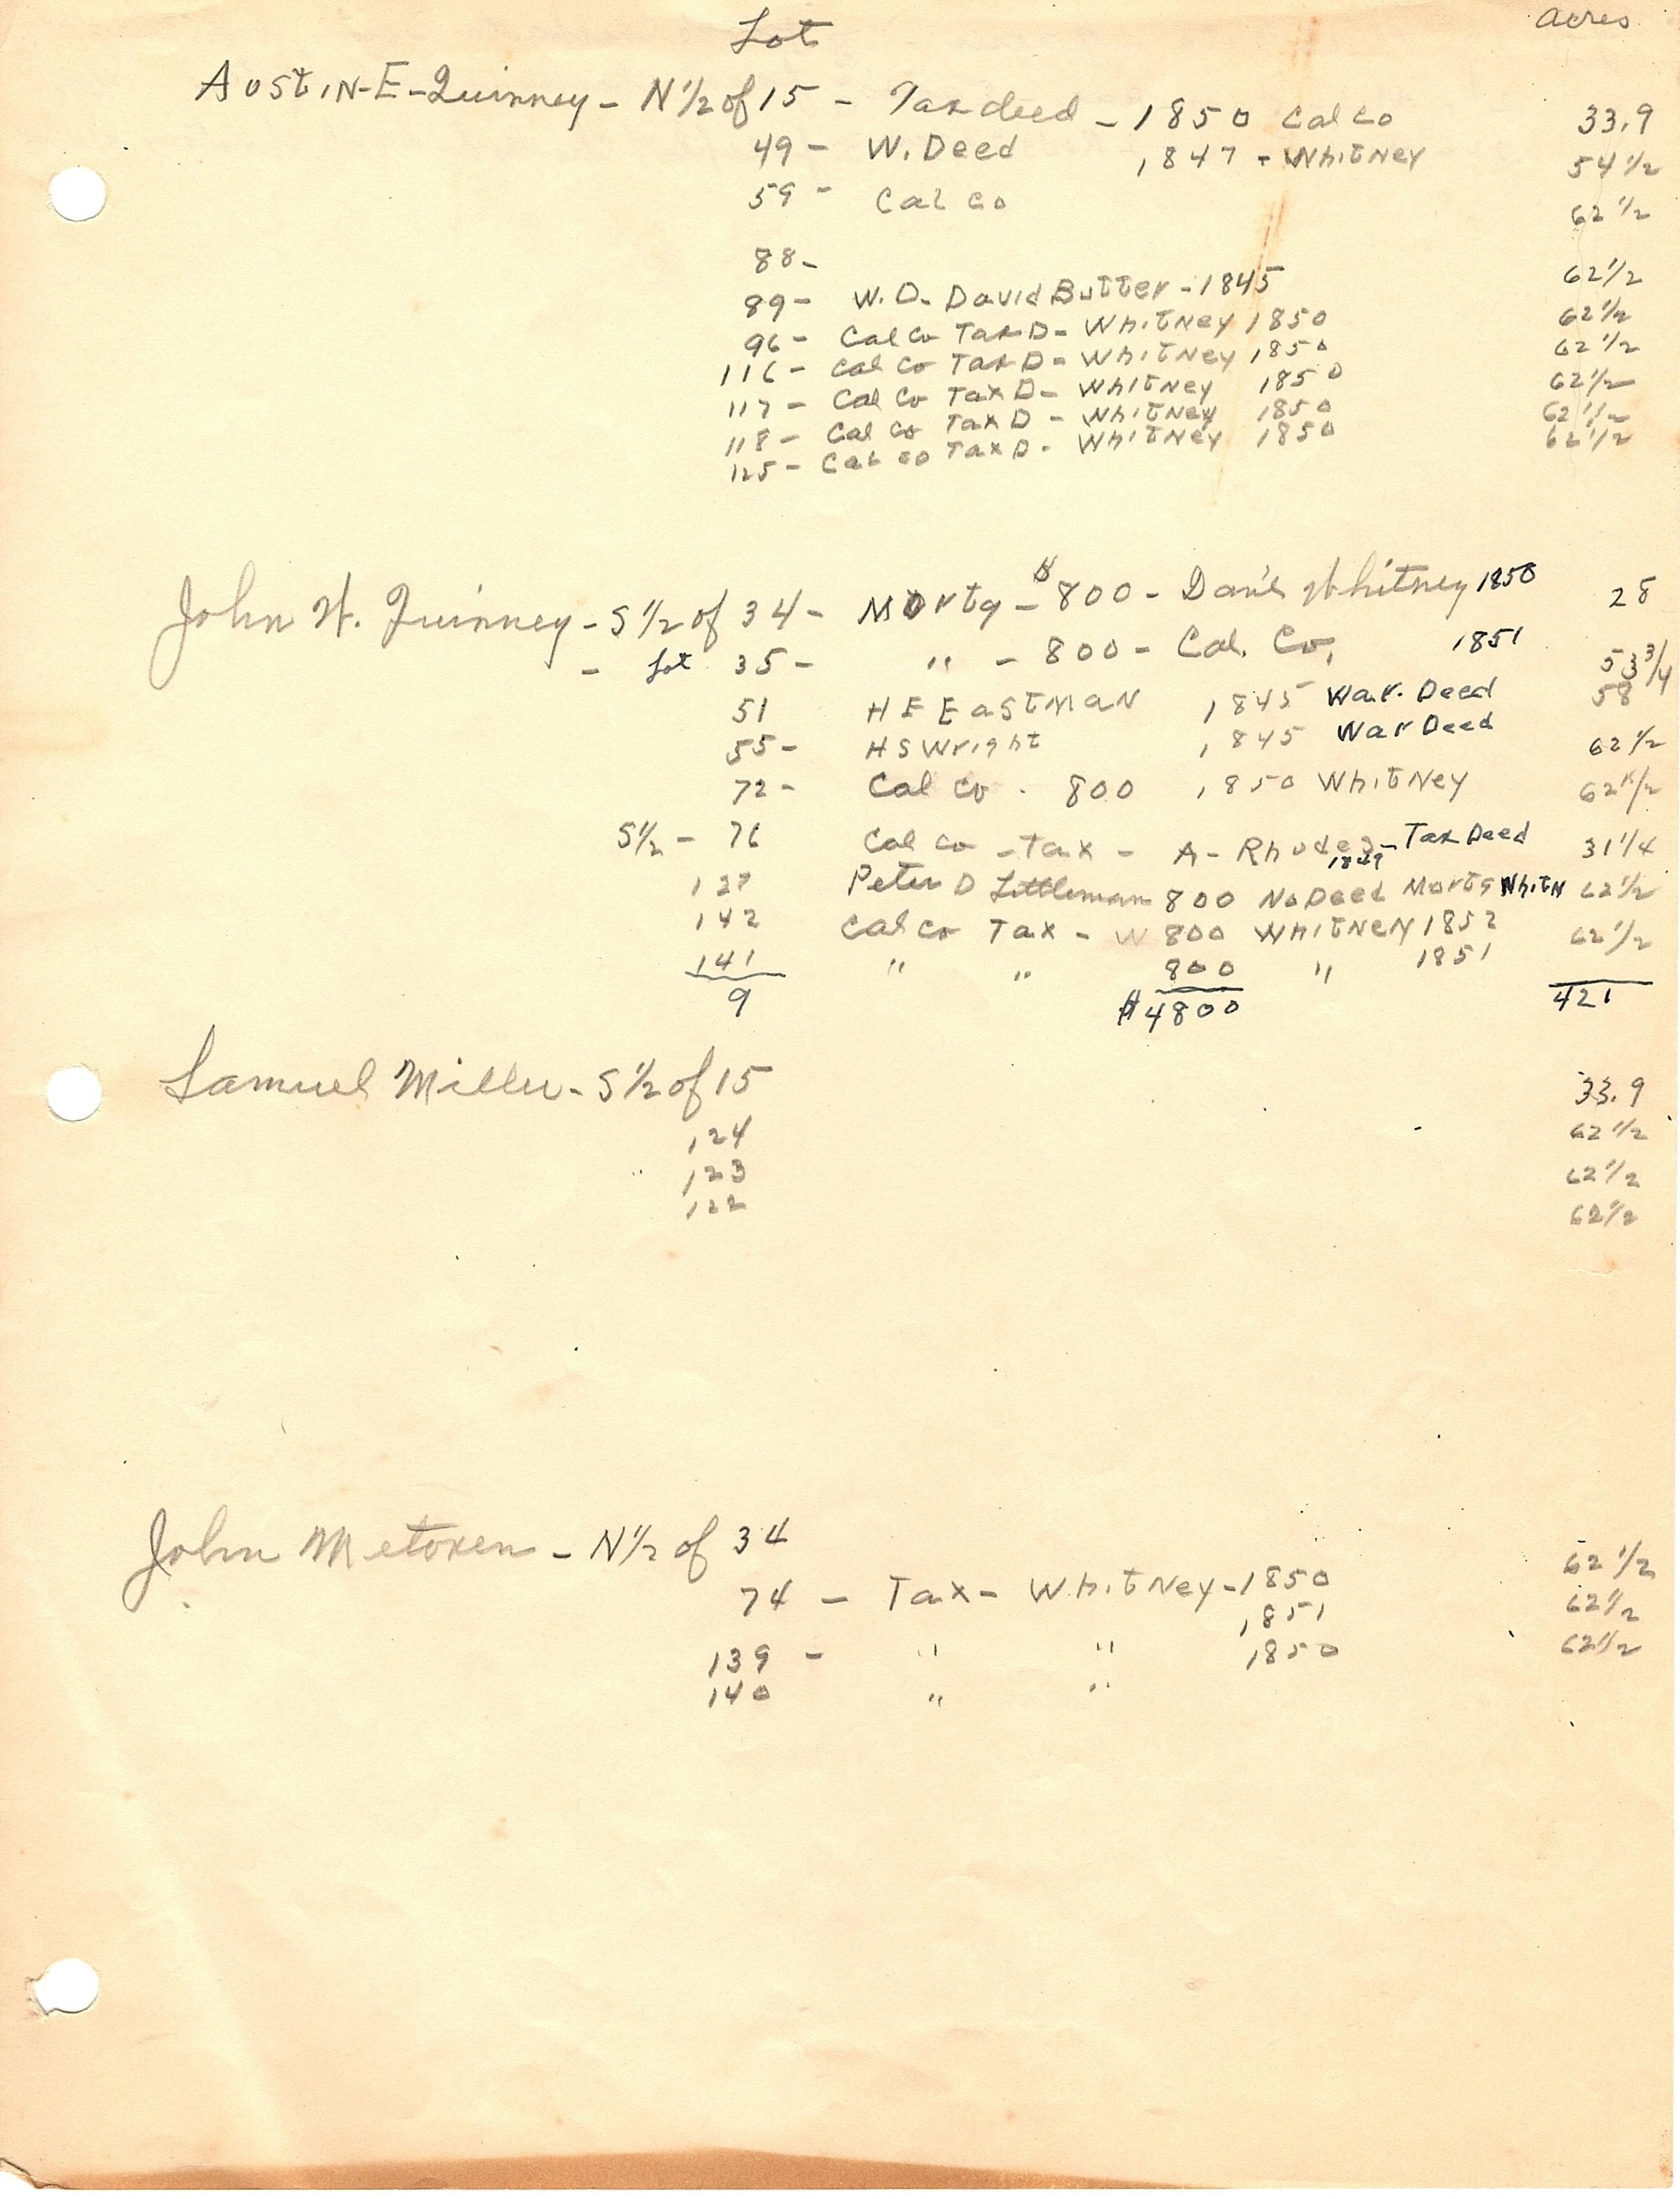 Lot acres
Austin-E-Quinney - N 1/2 of 15 - Tax deed - 1850 Cal Co 33.9
49 - W. Deed 1847 - Whitney 54 1/2
59 - Cal Co 62 1/2
88 - 62 1/2
89 - W.D. David Butter - 1845 62 1/2
96 - Cal Co Tax D - Whitney 1850 62 1/2
116 - Cal Co Tax D - Whitney 1850 62 1/2
117 - Cal Co Tax D - Whitney 1850 62 1/2
118 - Cal Co Tax D - Whitney 1850 62 1/2
125 - Cal Co Tax D - Whitney 1850
John W. Quinney - S 1/2 of 34 - Mortg - $800 - Dan'l Whitney 1850 28
- Lot 35 - " - 800 - Cal. Co, 1851 53 3/4
51 H E Eastman 1845 War. Deed 58
55 - H S Wright 1845 War Deed 62 1/2
72 - Cal Co - 800 1850 Whitney 62 1/2
S 1/2 - 76 Cal Co - Tax - A - Rhodes - Tax Deed 31 1/4
1849
127 Peter D Littleman 800 No Deed Mortg Whitn 62 1/2
142 Cal Co Tax - W 800 Whitney 1852 62 1/2
141 " " 800 " 1851
9 $4800 421
Samuel Miller - S 1/2 of 15 33.9
124 62 1/2
123 62 1/2
122 62 1/2
John Metoxen - N 1/2 of 34 62 1/2
74 - Tax - Whitney - 1850 62 1/2
1851
139 - " " 1850 62 1/2
140 " "